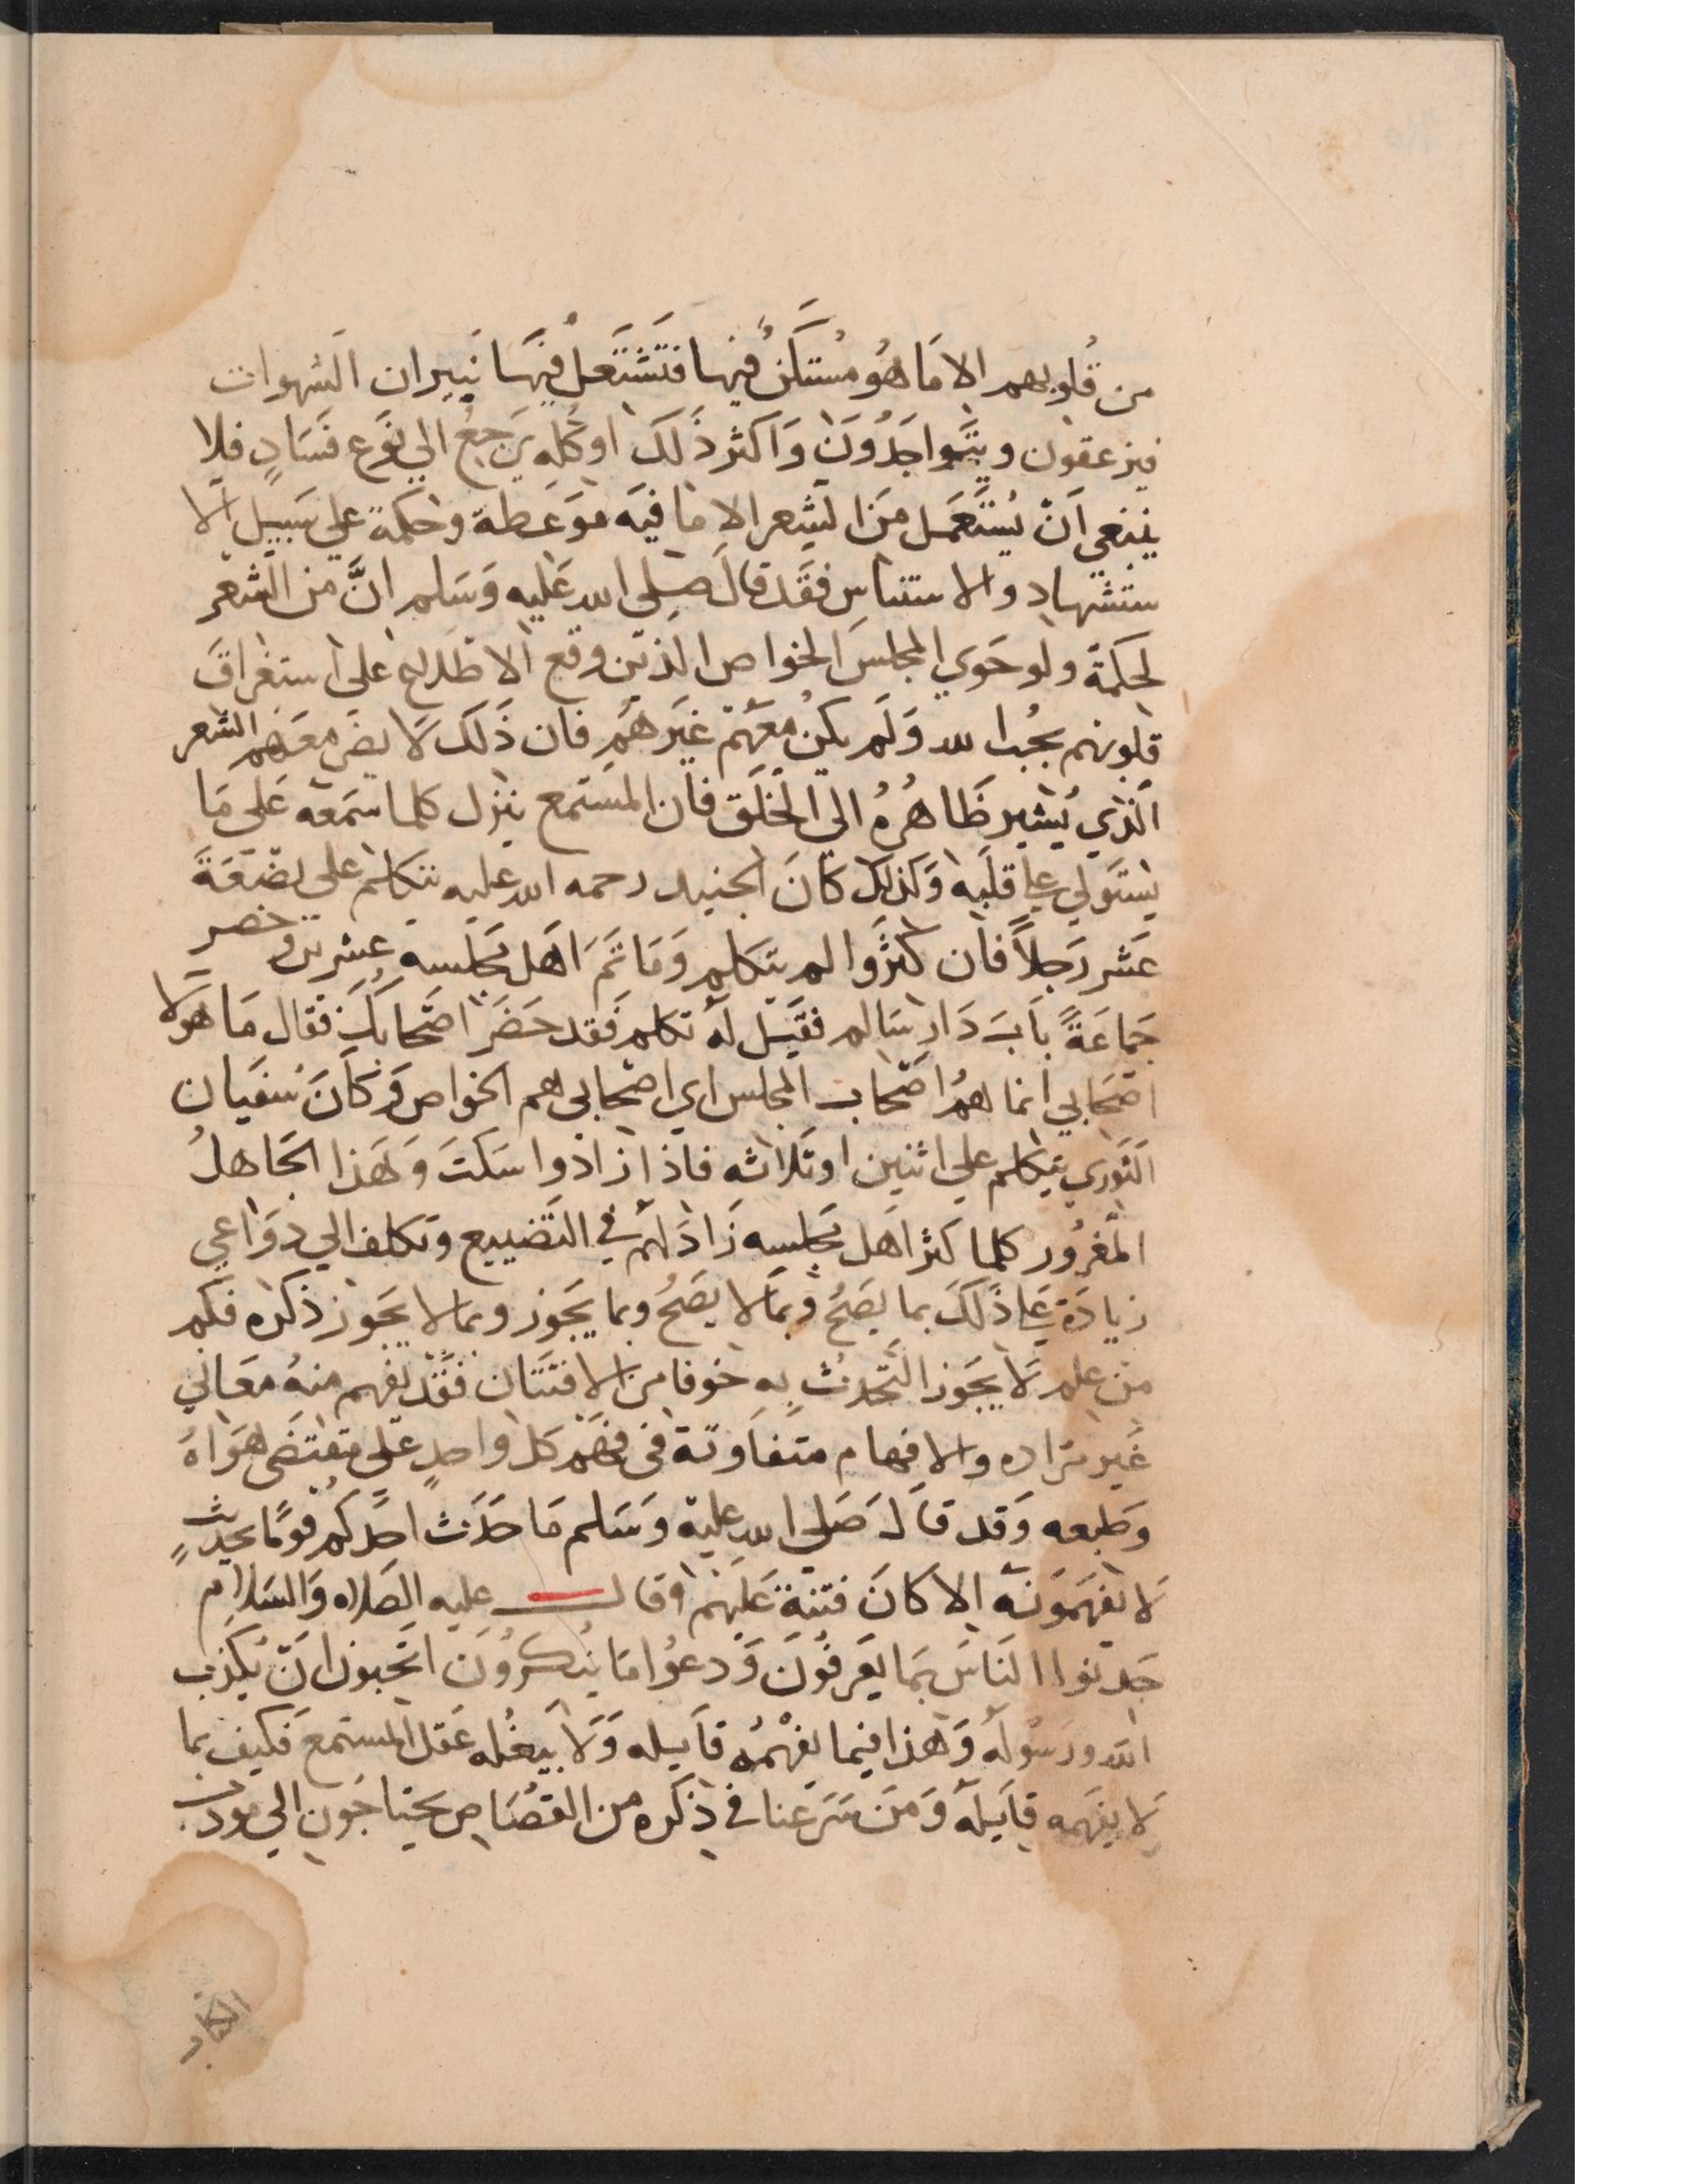 من قُلوبهم الا مَا هُو مُستكنٌ فيها فتَشتَعلُ فيهَا نَيِران الشهوات
فيزعقون ويتَواجَدُونَ وَاكثر ذَلَكَ اوكُله يَرجعُ الي نوَع فَسَادٍ فلا
ينبغي اَنْ يُستَعمَل مَن الشِعر الا مَا فيَه موَعظة وحكمة علي سَبيل الا
ستشهاد والاستناس فقَد قَال صلي الله عَليه وَسَلم انَّ من الشعر
لحكمَة ولو حَوي المجلسَ الخواص الذين وقع الاطلاع على استغراق
قلوبهم بحُب الله وَلَم يكن معَهم غيَرهَم فان ذَلك لَا يضر معَهم الشعر
الَّذي يُشير ظَاهرهُ الي الخلَق فان المستمع ينزل كلما سَمعَه عَلي مَا
يستَولي علي قلبَه وَكذلك كانَ الجنيد رحمه الله عليه يتكلم علي بضعَةَ
عَشر رَجلاً فان كثرَوا لم يتكلم وَمَا تَمَ اَهَل مجَلسه عشرين وَحضر
جَماعَةً بَابَ دَار سَالم فقيَل لَه تكلم فَقد حَضَرَ اصَحابكَ فقال مَا هَولا
اصَحَابي انما هُم اصَحاب المجلس اي اصَحابي هم الخواص وَكاَنَ سُفيَان
الثَوري يتكلم علي اثنين او ثلاثه فاذا زادوا سَكتَ وَهَذا الجَاهلُ
المغرُور كلما كثر اهَل مجَلسه زَادَ لهم في التَضييع وتكلف الي دوَاعي
زيادَة عَلي ذَلَكَ بما يصَحُ وبمَا لا يصَحُ وبما يَجَوز وبما لا يَجَوز ذكره فكم
من علم لَا يجَوز التَحدث بِه خوفا من الافتتان فَقَد يَفهم منهُ معَاني
غَير مرَاده والافهام متفاَوتة في فهَم كل واحدٍ علي مقتضَي هَوَاهُ
وَطبعه وَقد قاَل صَلي الله عليه وسَلم مَا حَدَث احَدكم قومًا بحديثٍ
لَا يَفهَمَونَه الا كانَ فتنة عَليهم وقال عليه الصَلاه وَالسَلام
حَدثوا النَاسَ بَما يَعرفوُنَ وَدعوُا مَا يُنكرُونَ اتحَبون اَنَ يُكذب
الله ورَسُوله وَهَذا فيما يفهَمُه قاَيله وَلَا يبلغُه عَقل المستمع فكيف بما
لا يفهَمه قاَيلَه وَمَن شَرعنا في ذكره من القصَاص يحتاجَون الي مودب